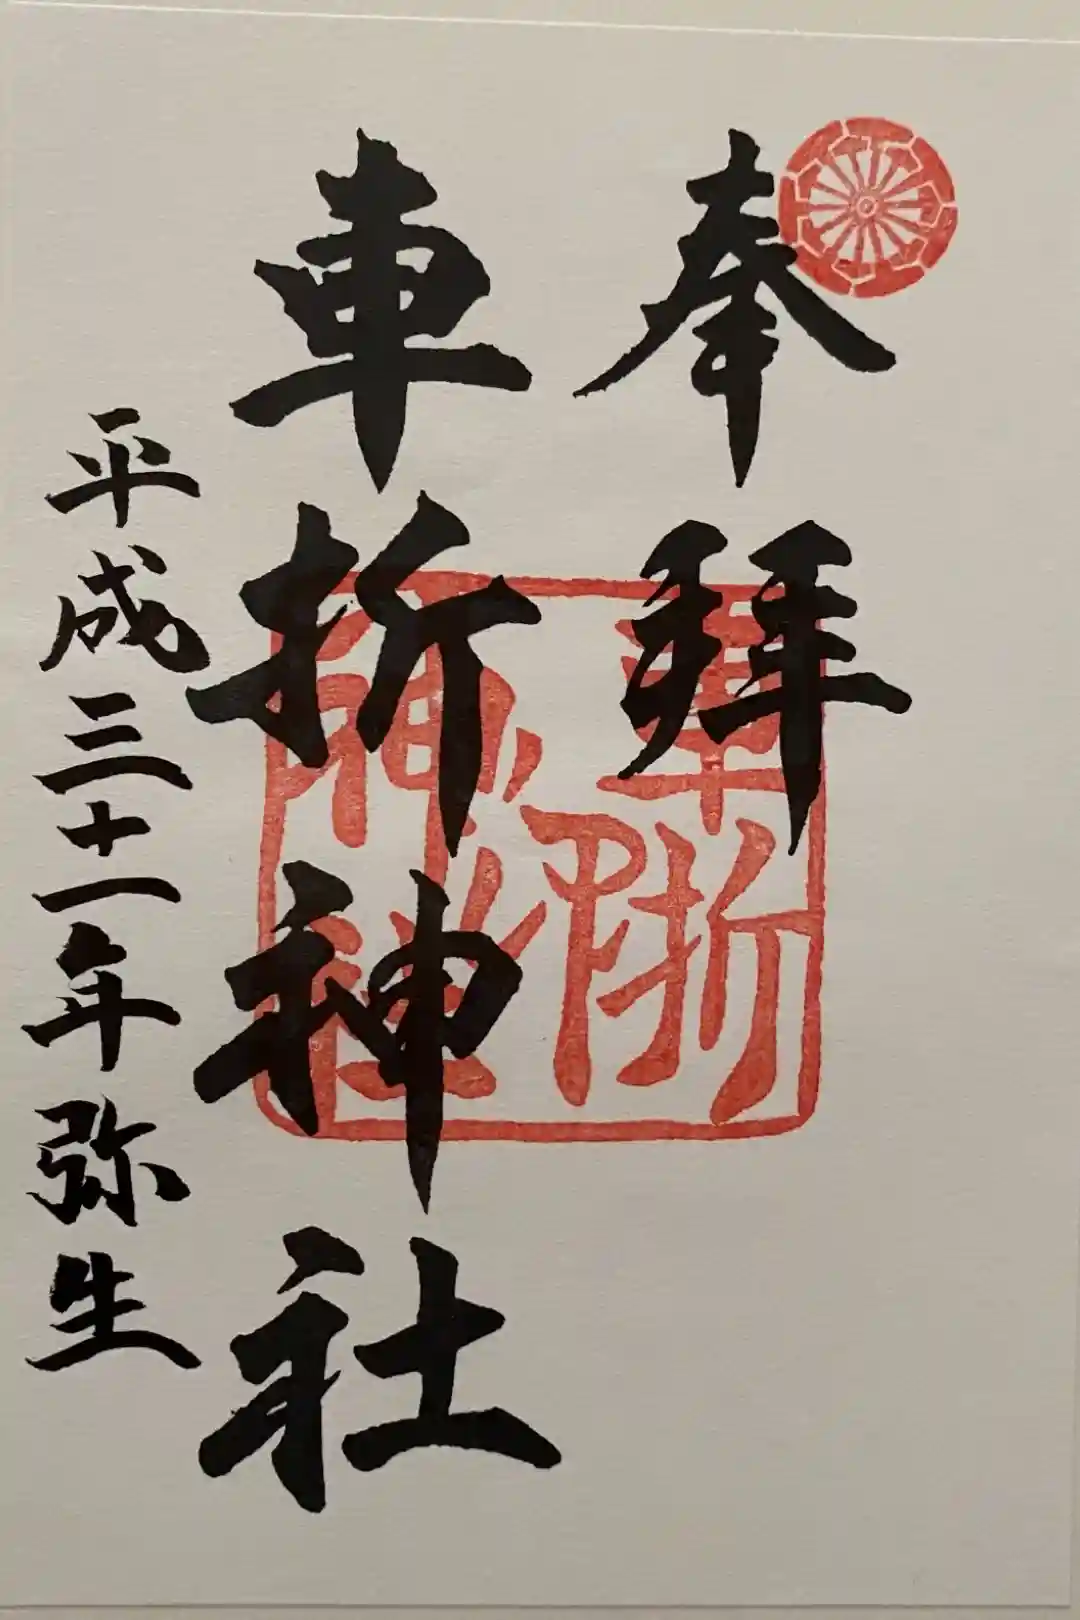 奉拜
車折神社
平成三十一年弥生
車折
神社